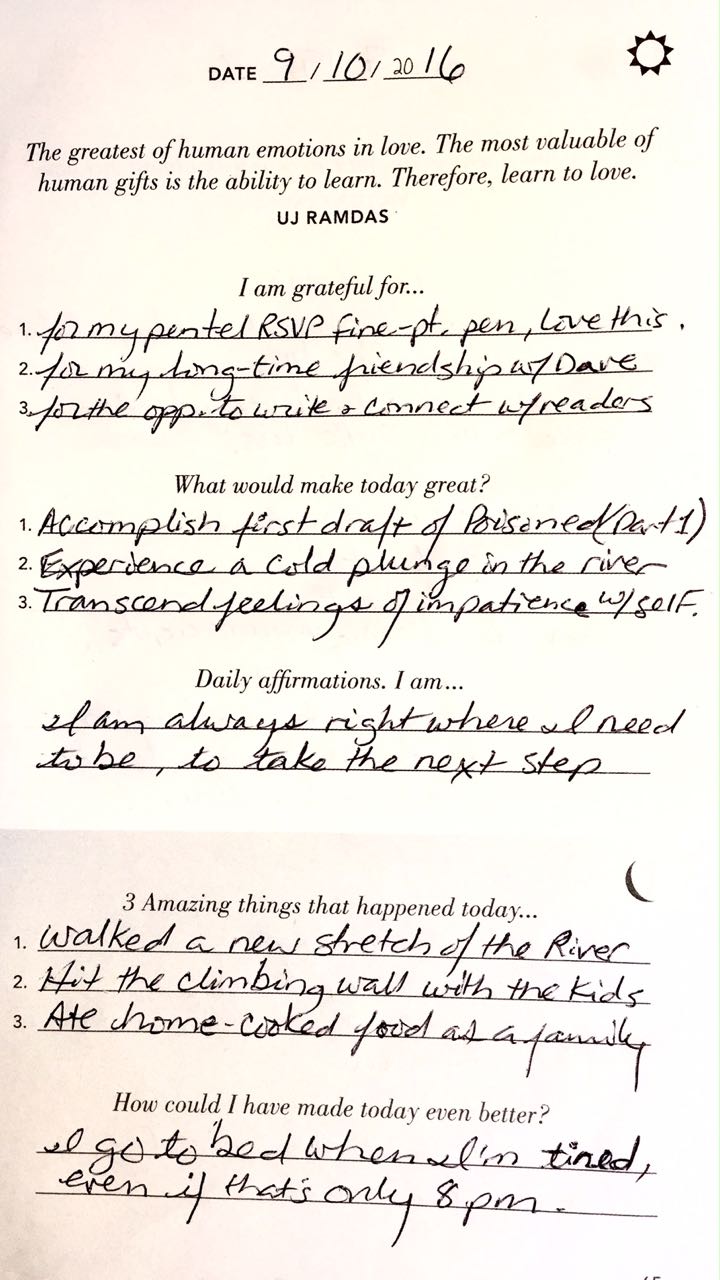 DATE 9 / 10 / 20 16
The greatest of human emotions in love. The most valuable of
human gifts is the ability to learn. Therefore, learn to love.
UJ RAMDAS
I am grateful for...
1. for my pentel RSVP fine-pt. pen, Love this.
2. for my long-time friendship w/ Dave
3. for the opp. to write & connect w/ readers
What would make today great?
1. Accomplish first draft of Poisoned (Part 1)
2. Experience a cold plunge in the river
3. Transcend feelings of impatience w/ self.
Daily affirmations. I am...
I am always right where I need
to be, to take the next step
3 Amazing things that happened today...
1. Walked a new stretch of the River
2. Hit the climbing wall with the kids
3. Ate home-cooked food as a family
How could I have made today even better?
I go to bed when I'm tired,
even if that's only 8 pm.